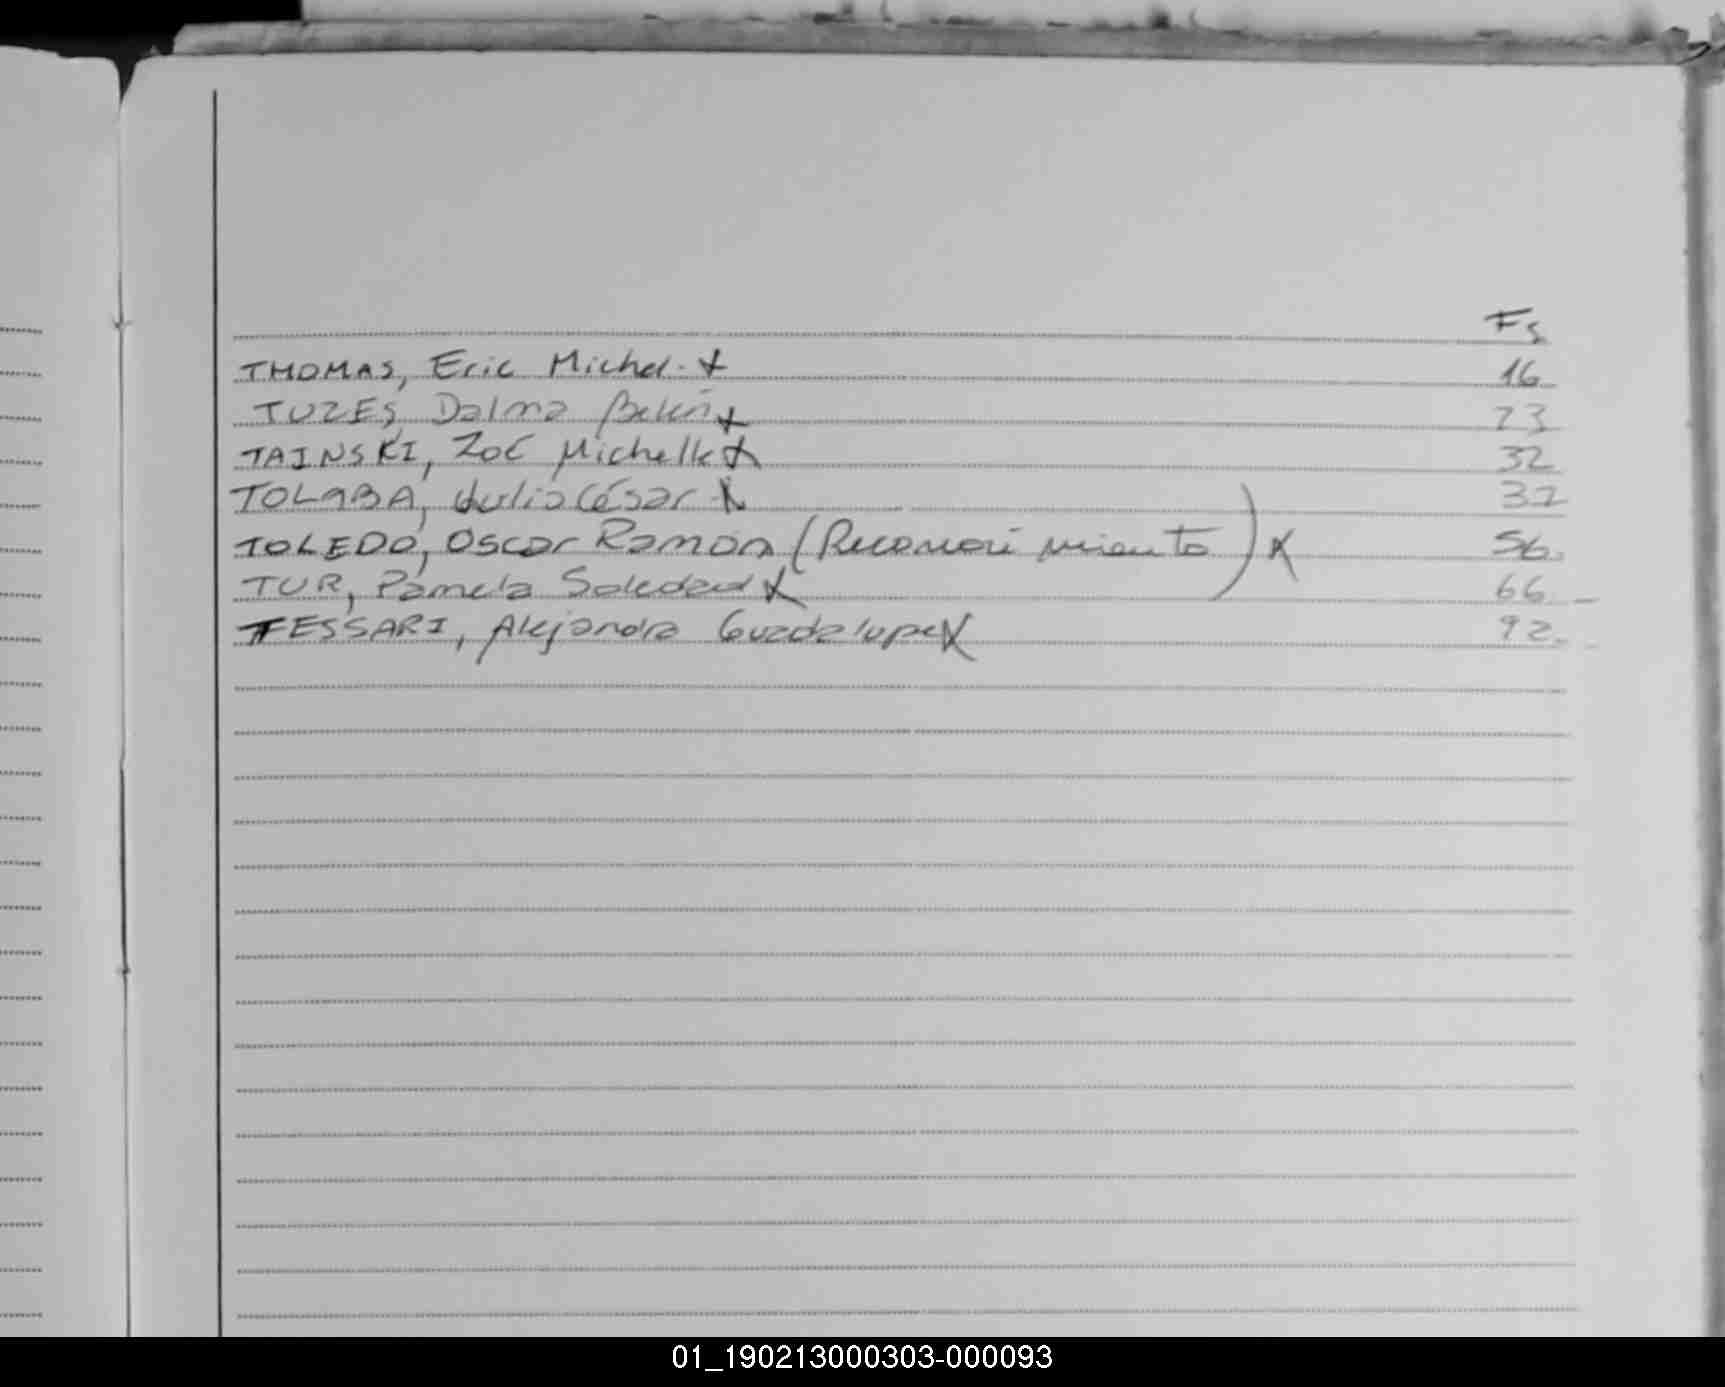 Fs
THOMAS, Eric Michel. x 16
TUZES, Dalma Belén x 23
TAINSKI, Zoé Michelle x 32
TOLABA, Julio César x 37
TOLEDO, Oscar Ramón (Reconocimiento) x 56.
TUR, Pamela Soledad x 66
TESSARI, Alejandra Guadalupe x 92.
01_190213000303-000093